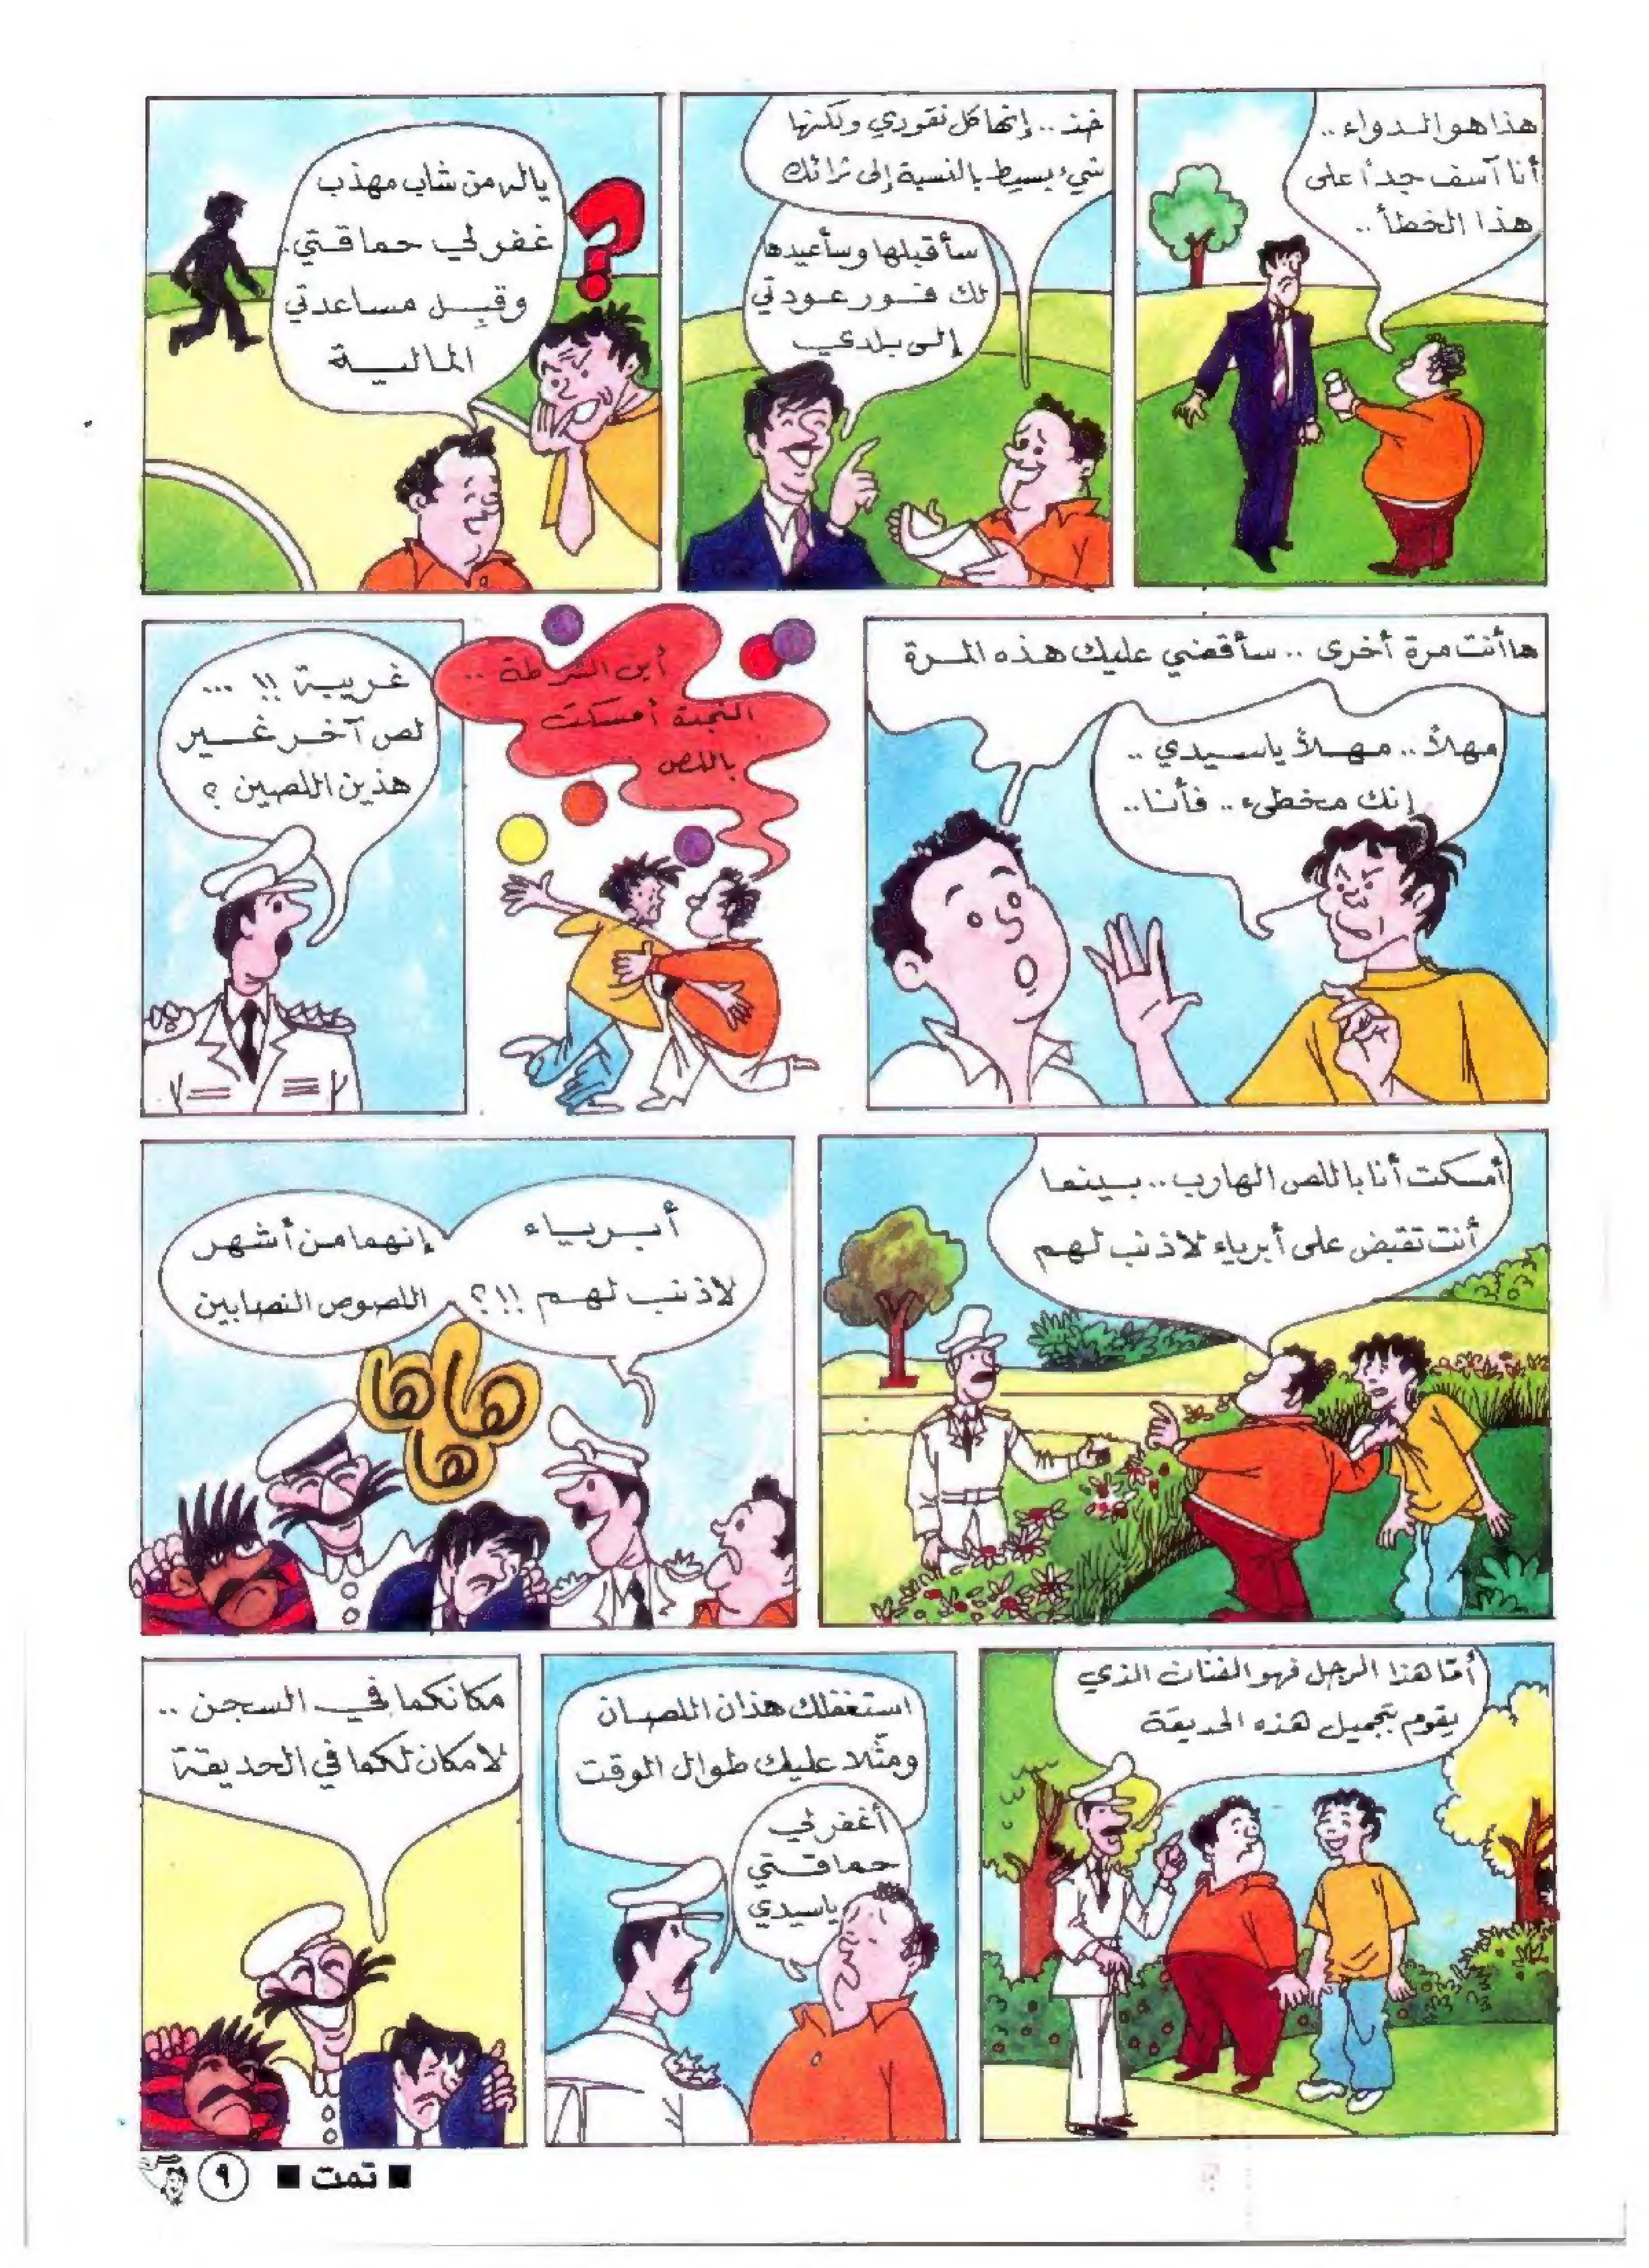 هذا هو الدواء ..
أنا آسف جداً على
هذا الخطأ ..
خذ .. إنها كل نقودي ولكنها
شيء بسيط بالنسبة إلى ثرائك
سأقبلها وسأعيدها
لك فور عودتي
إلى بلدي
ياله من شاب مهذب
غفر لي حماقتي.
وقبل مساعدتي
المالية
؟
ها أنت مرة أخرى .. سأقضي عليك هذه المرة
مهلاً .. مهلاً ياسيدي ..
إنك مخطىء .. فأنا ..
أين الشرطة ..
النجدة أمسكت
باللص
غريبة !! ...
لص آخر غير
هذين اللصين ؟
أمسكت أنا باللص الهارب .. بينما
أنت تقبض على أبرياء لاذنب لهم
أبرياء
لاذنب لهم !!؟
إنهما من أشهر
اللصوص النصابين
ها ها
ها
أمّا هذا الرجل فهو الفنان الذي
يقوم بتجميل هذه الحديقة
استغفلك هذان اللصان
ومثّلا عليك طوال الوقت
أغفر لي
حماقتي
ياسيدي
مكانكما في السجن ..
لا مكان لكما في الحديقة
■ تمت ■
٩